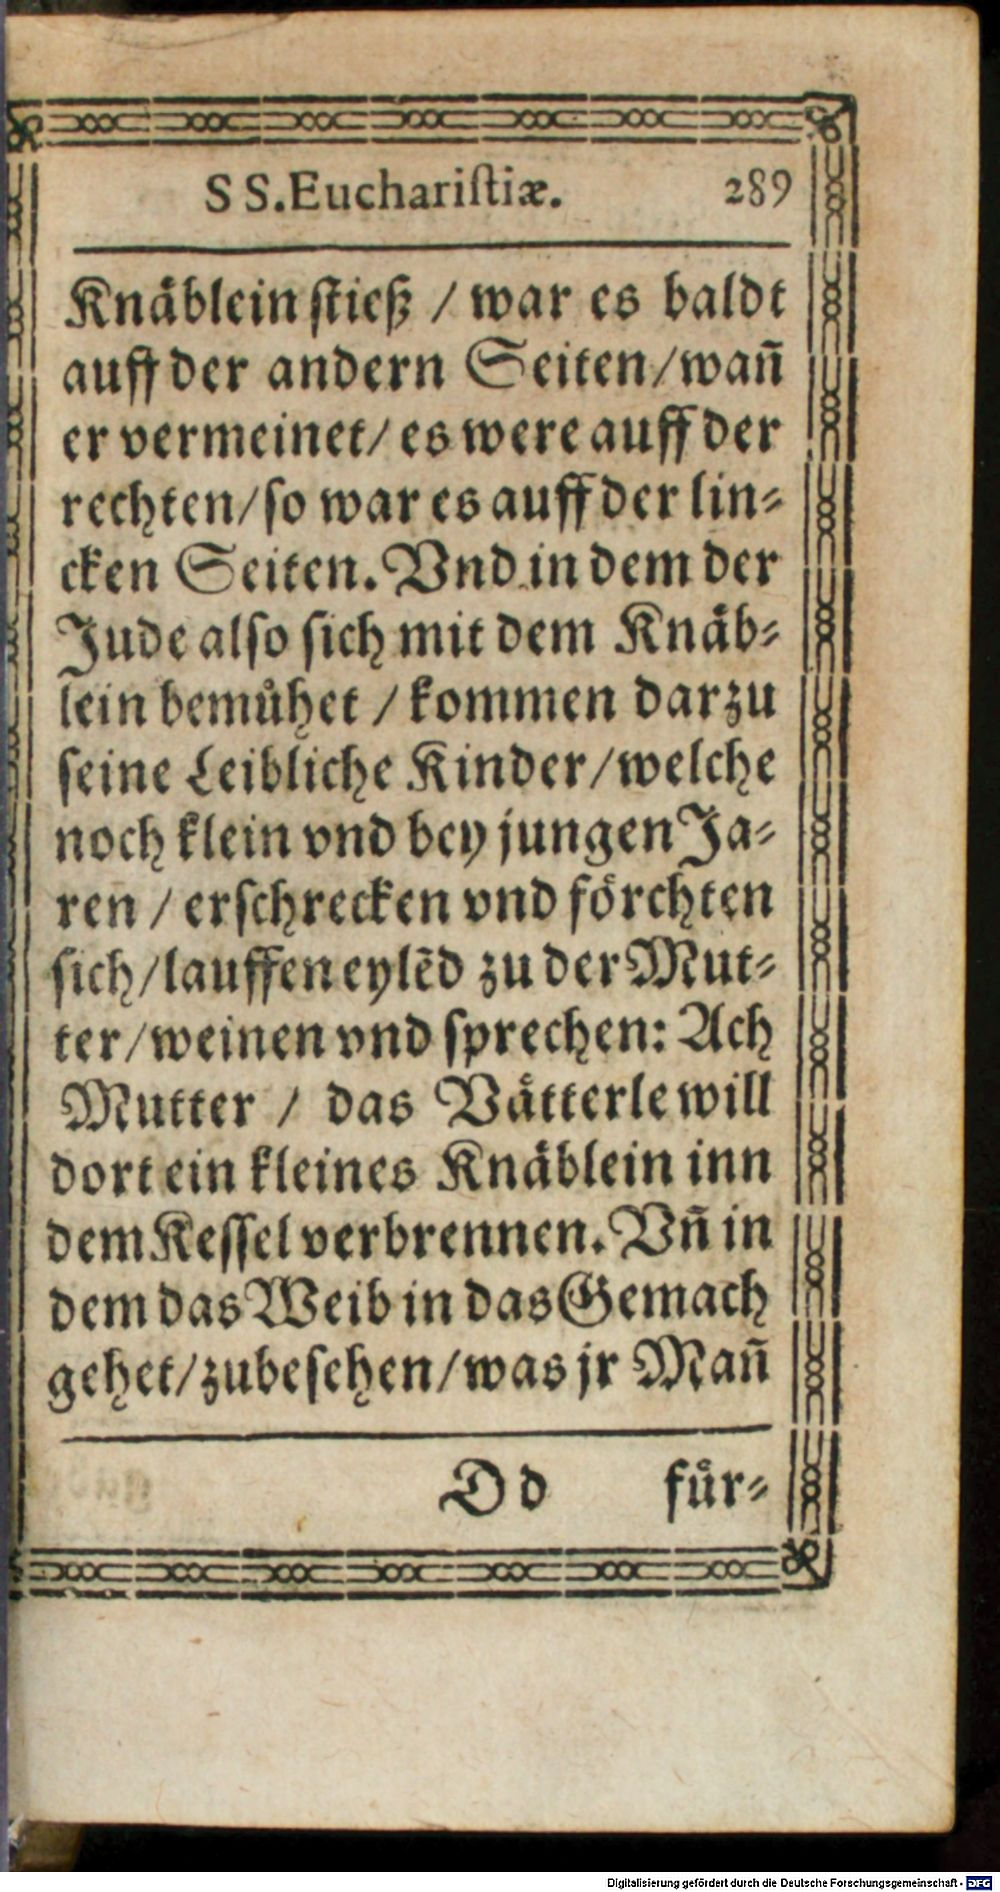 SS. Euchariſtiæ. 289
Knäblein ſtieß / war es baldt
auff der andern Seiten / wañ
er vermeinet / es were auff der
rechten / ſo war es auff der lin-
cken Seiten. Vnd in dem der
Jude alſo ſich mit dem Knäb-
lein bemühet / kommen darzu
ſeine Leibliche Kinder / welche
noch klein vnd bey jungen Ja-
ren / erſchrecken vnd förchten
ſich / lauffen eylēd zu der Mut-
ter / weinen vnd ſprechen: Ach
Mutter / das Vätterle will
dort ein kleines Knäblein inn
dem Keſſel verbrennen. Vñ in
dem das Weib in das Gemach
gehet / zubeſehen / was jr Mañ
Dd für-
Digitalisierung gefördert durch die Deutsche Forschungsgemeinschaft - DFG